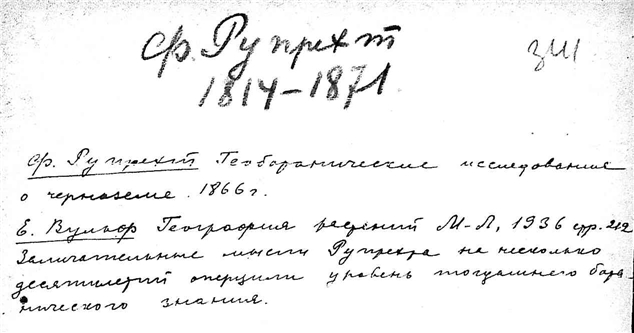 Ф. Рупрехт
ЗИ
1814–1871
Ф. Рупрехт Геоботанические исследования
о черноземе. 1866 г.
Е. Вульф География растений М-Л, 1936 стр. 212
Замечательные мысли Рупрехта на несколько
десятилетий опередили уровень тогдашнего бота
нического знания.